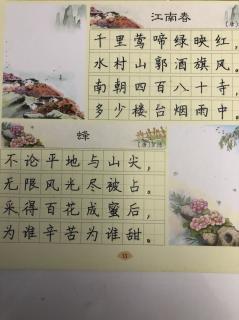 江南春
(唐)
千里莺啼绿映红，
水村山郭酒旗风。
南朝四百八十寺，
多少楼台烟雨中。
蜂
(唐)
不论平地与山尖，
无限风光尽被占。
采得百花成蜜后，
为谁辛苦为谁甜。